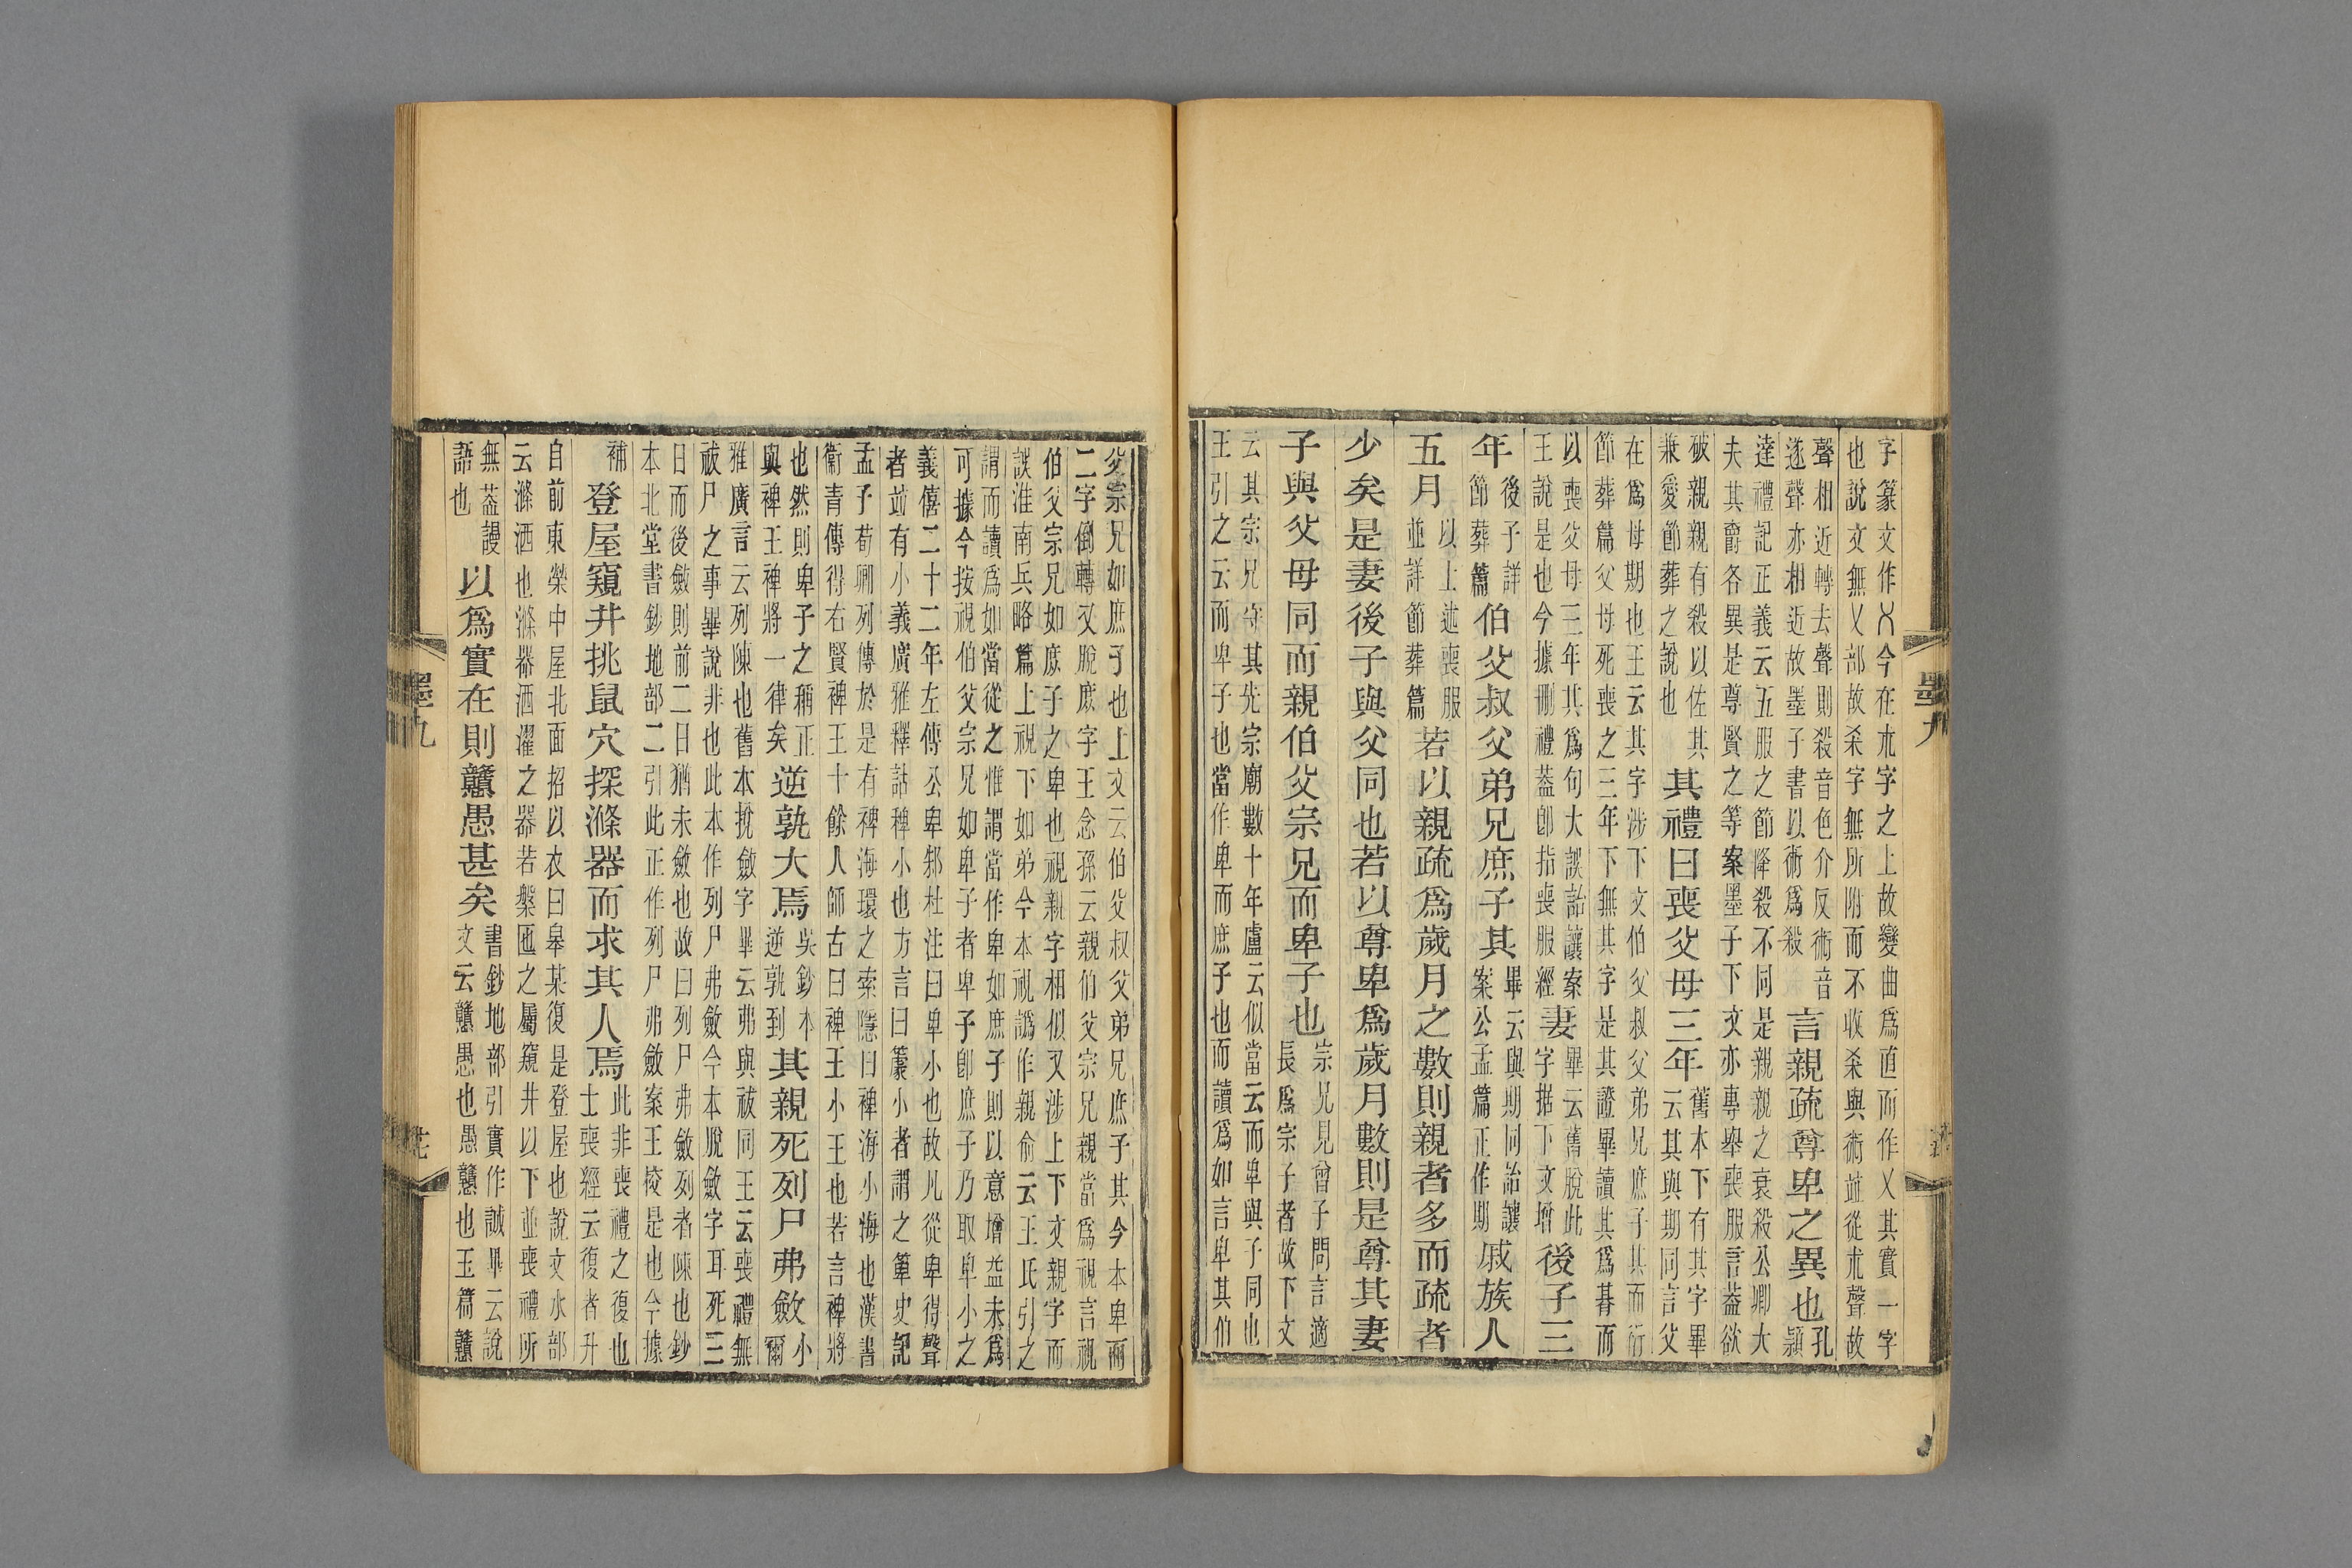 字篆文作乂今在朮字之上故變曲爲直而作乂其實一字
也說文無乂部故杀字無所附而不收杀與術竝從朮聲故
聲相近轉去聲則殺音色介反術音
遂聲亦相近故墨子書以術爲殺
言親疏尊卑之異也
孔
穎
達禮記正義云五服之節降殺不同是親親之衰殺公卿大
夫其爵各異是尊賢之等案墨子下文亦專舉喪服言蓋欲
破親親有殺以佐其
兼愛節葬之說也
其禮曰喪父母三年
舊本下有其字畢
云其與期同言父
在爲母期也王云其字涉下文伯父叔父弟兄庶子其而衍
節葬篇父母死喪之三年下無其字是其證畢讀其爲朞而
以喪父母三年其爲句大誤詒讓案
王說是也今據刪禮蓋卽指喪服經
妻
畢云舊脫此
字据下文增
後子三
年
後子詳
節葬篇
伯父叔父弟兄庶子其
畢云與期同詒讓
案公孟篇正作期
戚族人
五月
以上述喪服
竝詳節葬篇
若以親疏爲歲月之數則親者多而疏者
少矣是妻後子與父同也若以尊卑爲歲月數則是尊其妻
子與父母同而親伯父宗兄而卑子也
宗兄見曾子問言適
長爲宗子者故下文
云其宗兄守其先宗廟數十年盧云似當云而卑與子同也
王引之云而卑子也當作卑而庶子也而讀爲如言卑其伯
墨九
父宗兄如庶子也上文云伯父叔父弟兄庶子其今本卑而
二字倒轉又脫庶字王念孫云親伯父宗兄親當爲視言視
伯父宗兄如庶子之卑也視親字相似又涉上下文親字而
誤淮南兵略篇上視下如弟今本視譌作親俞云王氏引之
謂而讀爲如當從之惟謂當作卑如庶子則以意增益未爲
可據今按視伯父宗兄如卑子者卑子卽庶子乃取卑小之
義僖二十二年左傳公卑邾杜注曰卑小也故凡從卑得聲
者竝有小義廣雅釋詁稗小也方言曰篆小者謂之箄史記
孟子荀卿列傳於是有裨海環之索隱曰裨海小海也漢書
衞青傳得右賢裨王十餘人師古曰裨王小王也若言裨將
也然則卑子之稱正
與裨王裨將一律矣
逆孰大焉
吳鈔本
逆孰到
其親死列尸弗斂
小
爾
雅廣言云列陳也舊本挩斂字畢云弗與祓同王云喪禮無
祓尸之事畢說非也此本作列尸弗斂今本脫斂字耳死三
日而後斂則前二日猶未斂也故曰列尸弗斂列者陳也鈔
本北堂書鈔地部二引此正作列尸弗斂案王校是也今據
補
登屋窺井挑鼠穴探滌器而求其人焉
此非喪禮之復也
士喪經云復者升
自前東榮中屋北面招以衣曰皋某復是登屋也說文水部
云滌洒也滌器洒濯之器若槃匜之屬窺井以下竝喪禮所
無蓋謾
語也
以爲實在則戇愚甚矣
書鈔地部引實作誠畢云說
文云戇愚也愚戇也玉篇戇
墨九